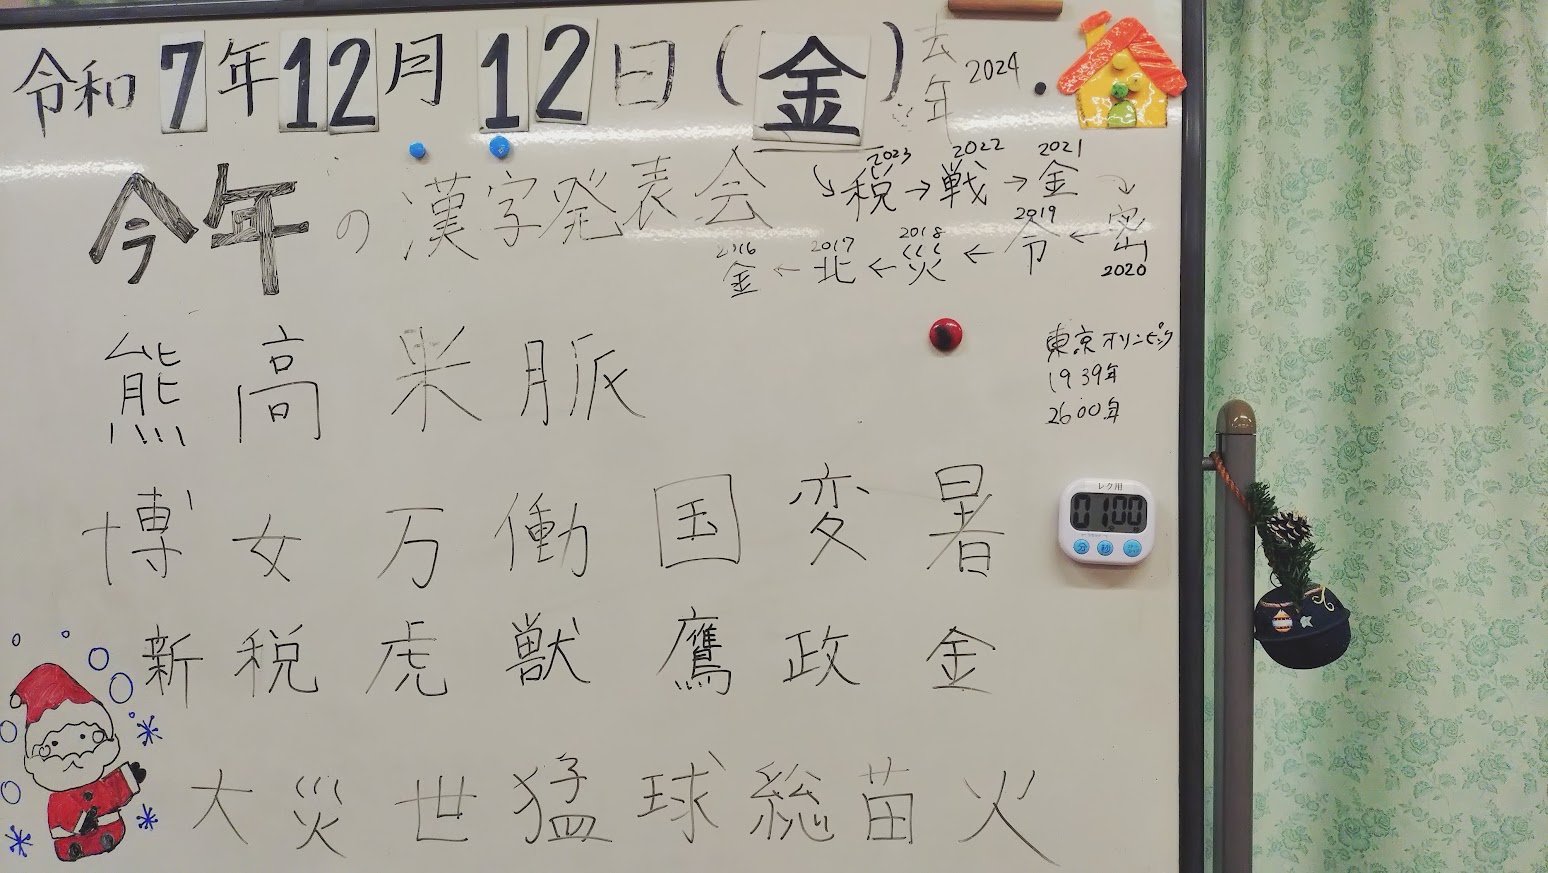 令和7年12月12日(金)
去年 2024
今年の漢字発表会
2023 2022 2021
税→戦→金
2016 2017 2018 2019
金←北←災←令←密
2020
東京オリンピック
1939年
2600年
熊 高 米 脈
博 女 万 働 国 変 暑
レク用
01:00
分 秒
新 税 虎 獣 鷹 政 金
大 災 世 猛 球 総 苗 火